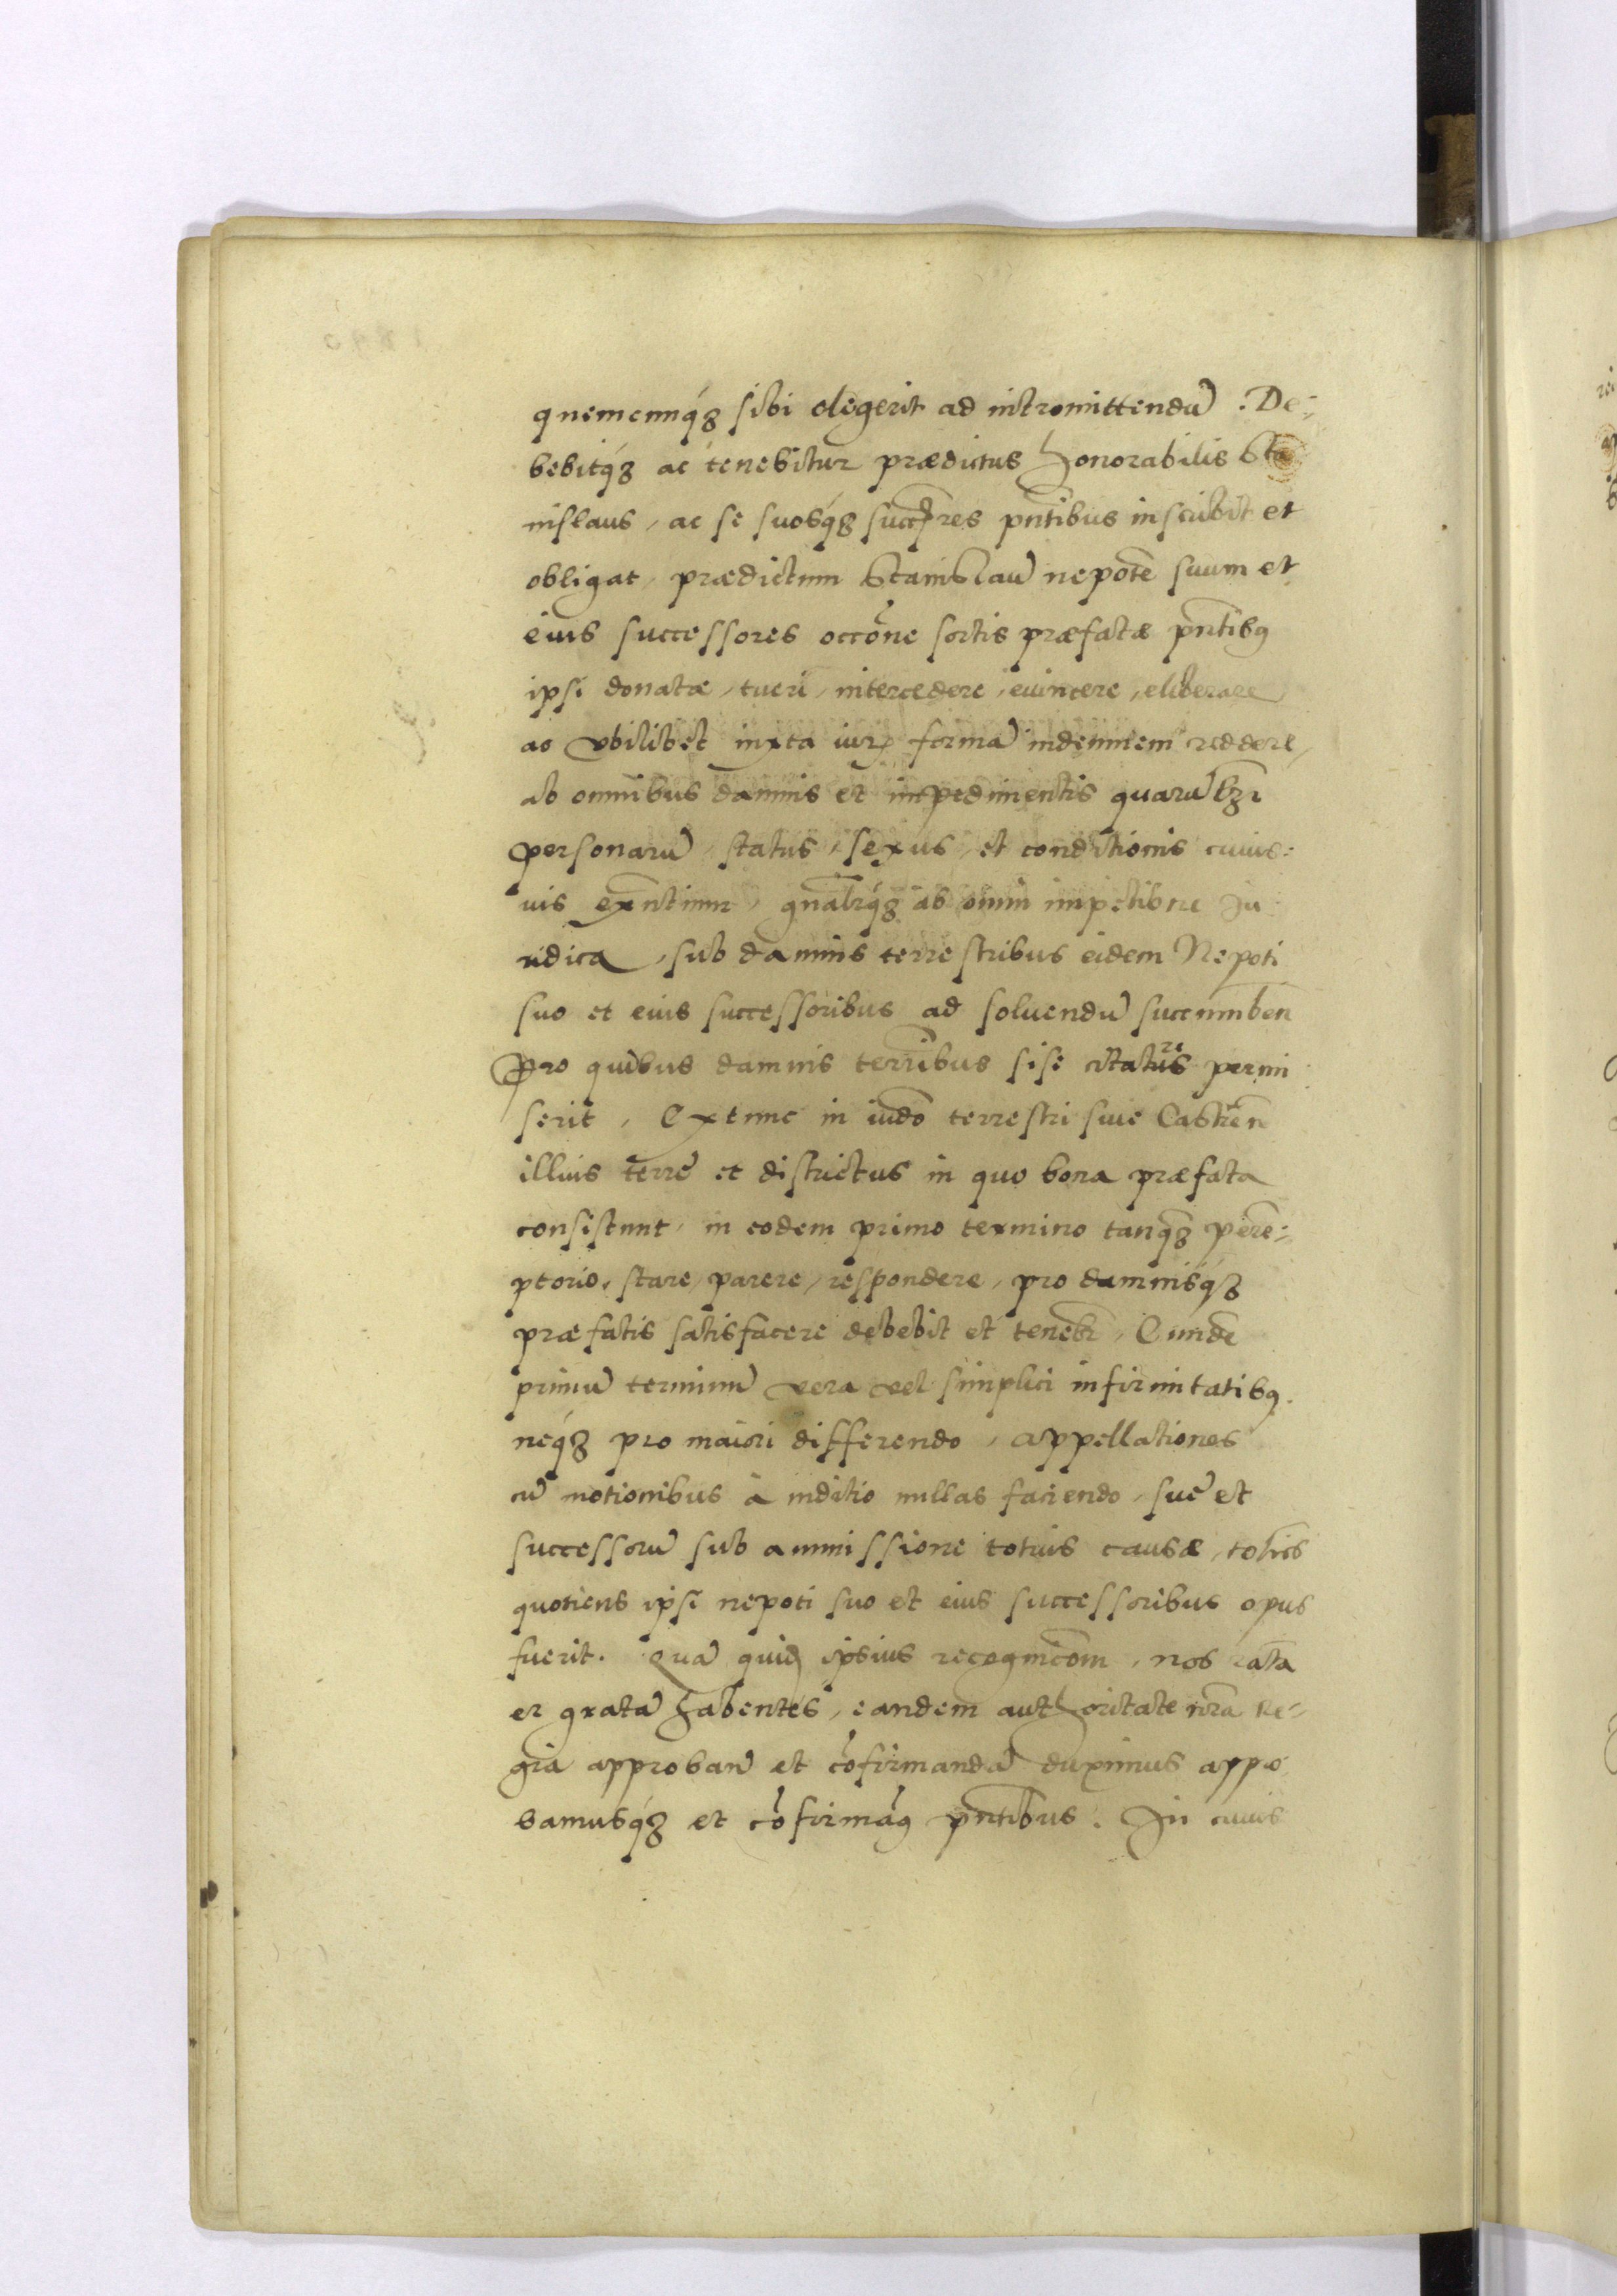 quemcunq́ꝫ sibi elegerit ad intromittendū. De=
bebitq́ꝫ ac tenebitur prædictus honorabilis Sta
nislaus, ac se suosq́ꝫ succ̄res pn̄tibus inscribit et
obligat, prædictum Stanislaū nepotē suum et
eius successores occōne sortis præfatæ pn̄tibꝯ
ipsi donatæ, tueri, intercedere, euincere, eliberare
ac vbilibet iuxta iurꝭ formā indemnem reddere,
ab omnibus damnis et impedimentis quarūlꝫi
personarū, status, sexus, et conditionis cuius=
uis exn̄tium, gnāl̄rq́ꝫ ab omni impetitōne Iu
ridica, sub damnis terrestribus eidem Nepoti
suo et eius successoribus ad soluendū succumben̄
Pro quibus damnis terrībus sise citatus re permi
serit, Extunc in iudō terrestri siue Castren̄
illius terrę et districtus in quo bona præfata
consistunt, in eodem primo termino tanq̄ꝫ perē=
ptorio, stare, parere, respondere, pro damnisq́ꝫ
præfatis satisfacere debebit et tenebr̄, Eundē
primū terminū vera vel simplici infirmitatibꝯ.
neq́ꝫ pro maiori differendo, Appellationes
cū motionibus à iuditio nullas faciendo, suę et
successorū sub ammissione totius causæ, totiēs
quotiens ipsi nepoti suo et eius successoribus opus
fuerit. Quā quidꝫ ipsius recognicōm, nos ratā
et gratā habentes, eandem authoritate nrā Re=
gia approban̄ et cōfirmandā duximus appo
bamusq́ꝫ et cōfirmāꝯ pn̄tibus. In cuius